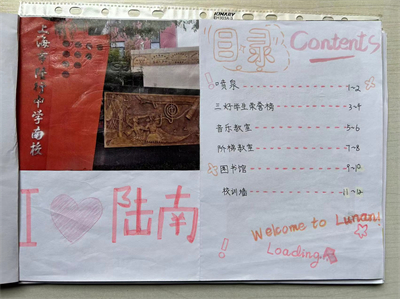 KINARY
上海市陆行中学南校
I ♥ 陆南
目录
Contents
喷泉 1~2
三好学生荣誉榜 3~4
音乐教室 5~6
阶梯教室 7~8
图书馆 9~10
校训墙 11~12
Welcome to Lunan!
Loading